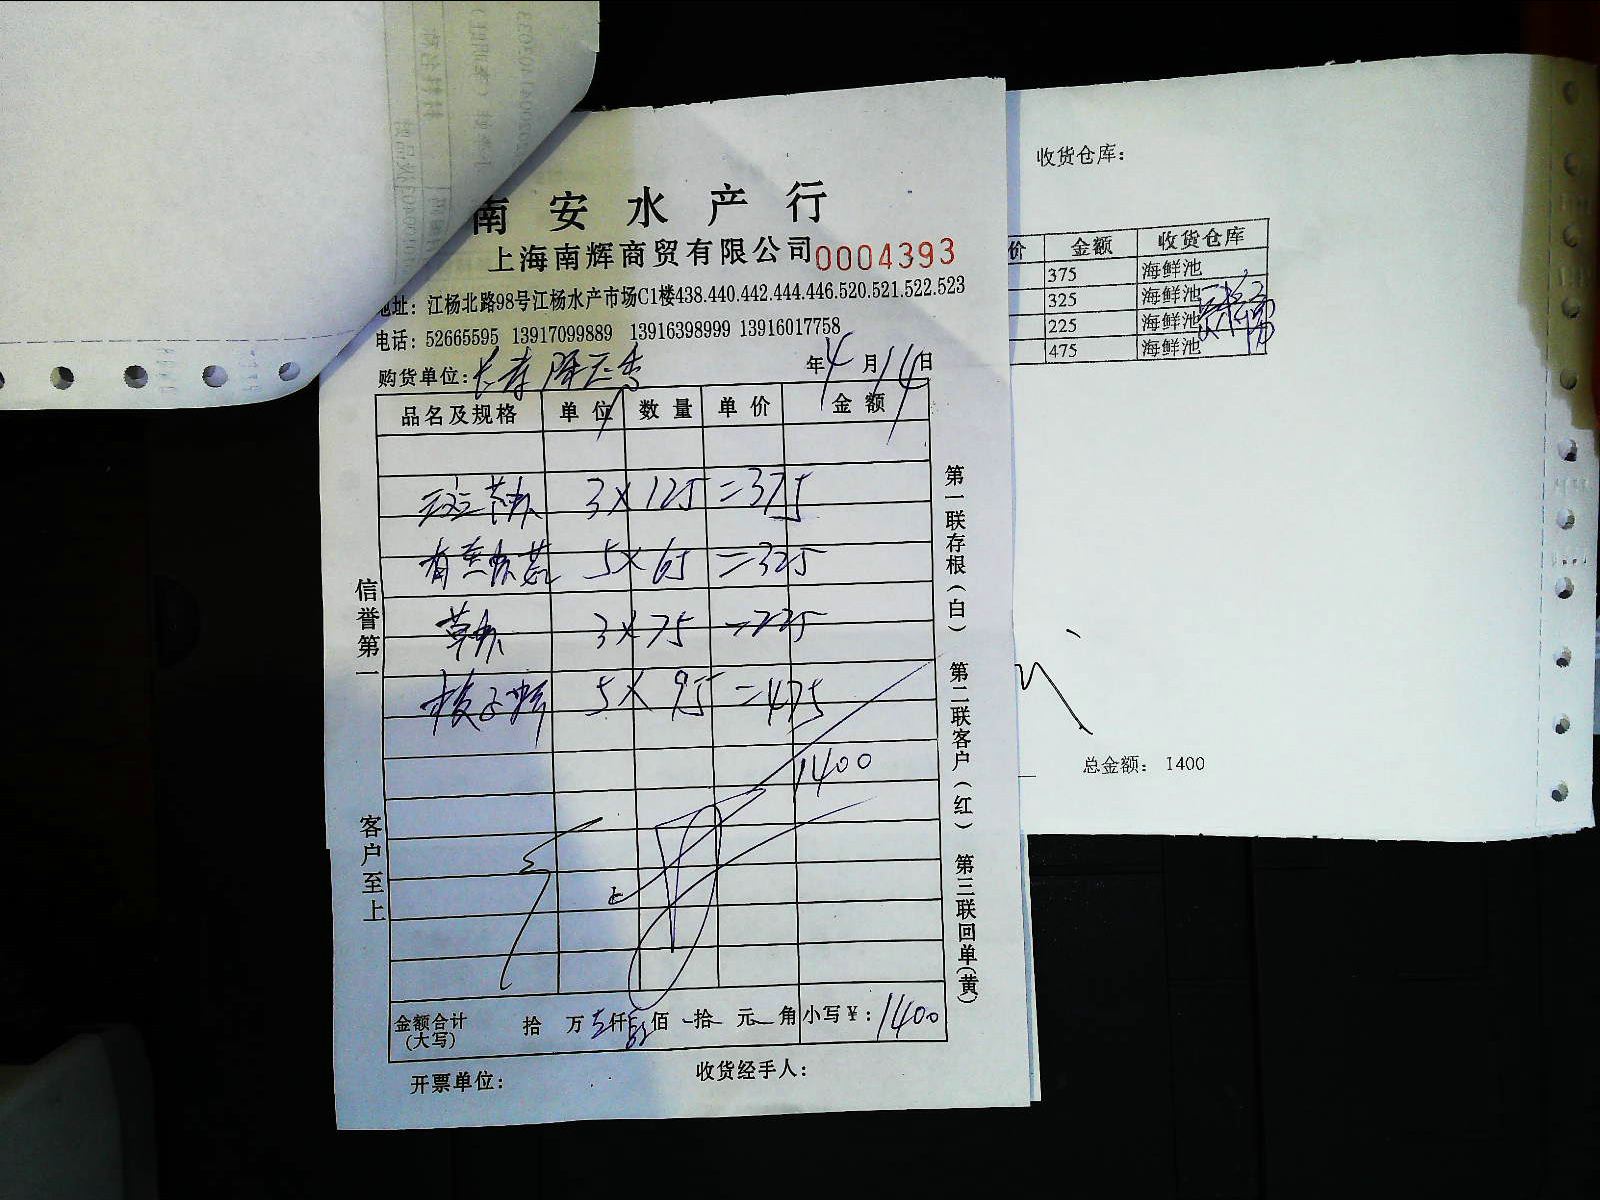 南安水产行
上海南辉商贸有限公司 0004393
地址：江杨北路98号江杨水产市场C1楼438.440.442.444.446.520.521.522.523
电话：52665595 13917099889 13916398999 13916017758
购货单位：长寿 年4月14日
品名及规格 单位 数量 单价 金额
3×125=375
5×65=325
草虾 3×75=225
5×95=475
1400
金额合计(大写) 拾 万 仟 佰 拾 元 角 小写￥：1400
开票单位： 收货经手人：
信誉第一
客户至上
第一联存根（白） 第二联客户（红） 第三联回单(黄)
收货仓库：
价 金额 收货仓库
375 海鲜池
325 海鲜池
225 海鲜池
475 海鲜池
总金额： 1400